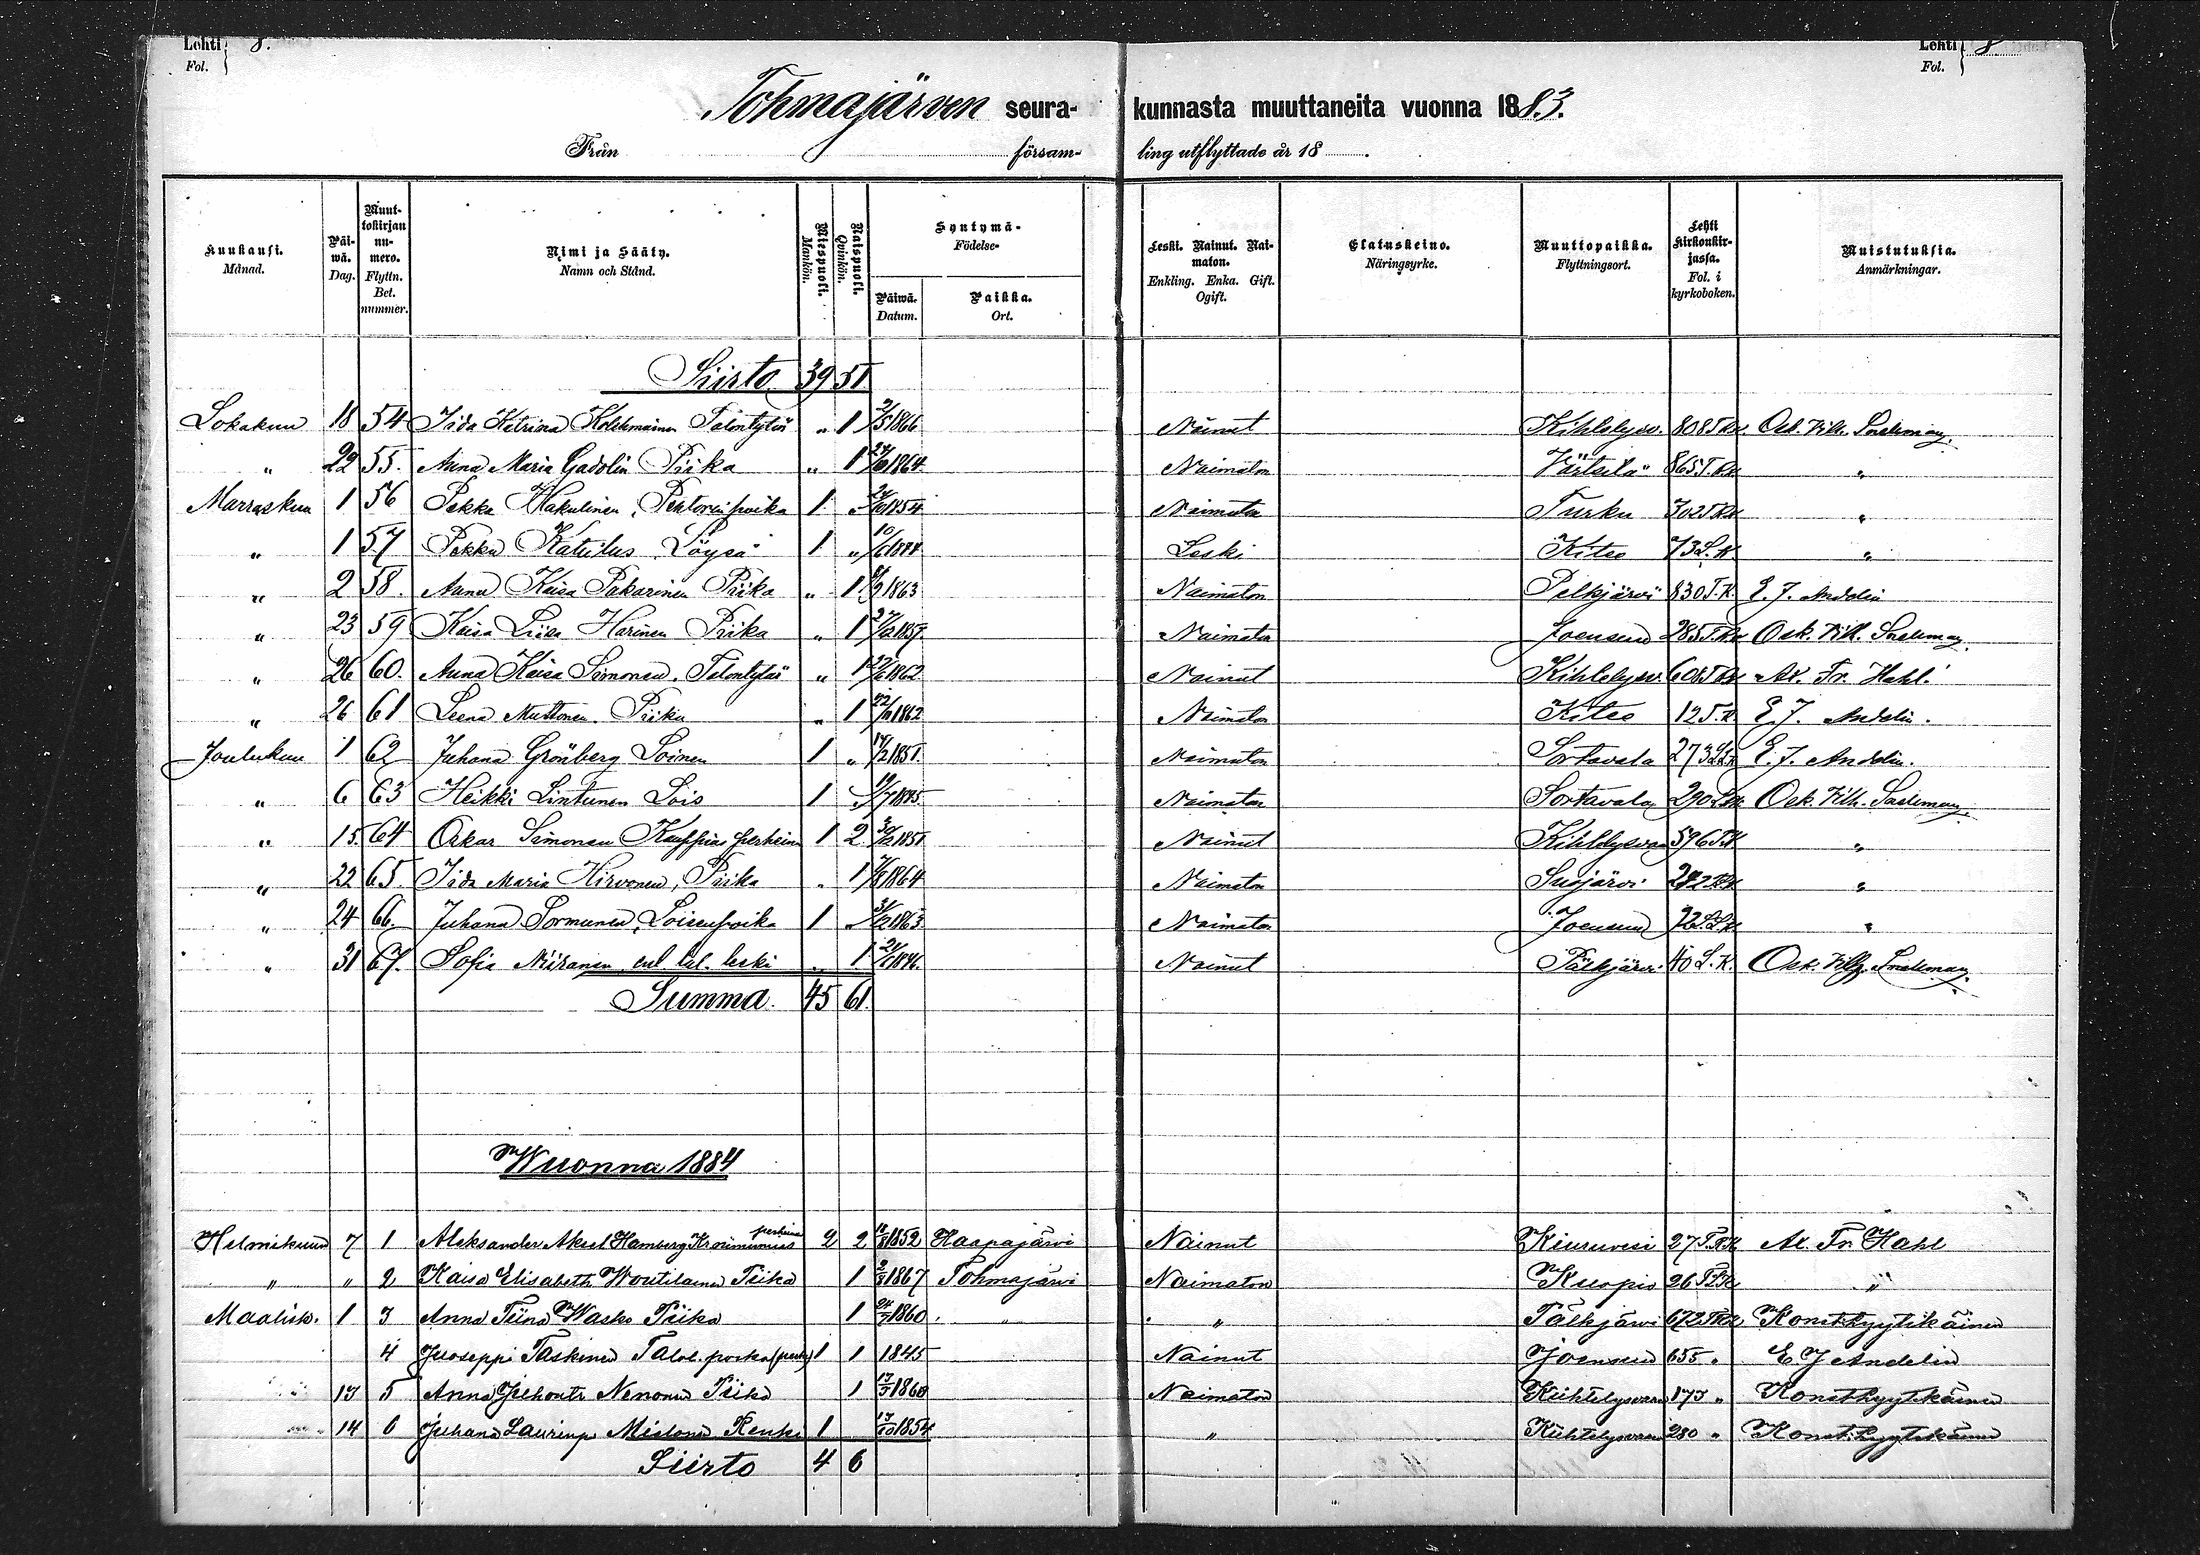 Lehti 8.
Fol.
Lehti 8
Fol.
Tohmajärven seura- kunnasta muuttaneita vuonna 1883.
Från församling utflyttade år 18
Kuukausi. Månad. Päiwä. Dag. Muuttokirjan numero. Flyttn. Bet. nummer. Nimi ja Sääty. Namn och Stånd. Miespuoli. Mankön. Naispuoli. Qvinkön. Syntymä- Födelse- Päiwä. Datum. Paikka. Ort. Leski. Nainut. Naimaton. Enkling. Enka. Gift. Ogift. Elatuskeino. Näringsyrke. Muuttopaikka. Flyttningsort. Lehti Kirkonkirjassa. Fol. i kyrkoboken. Muistutuksia. Anmärkningar.
Siirto 39 51
Lokakuu 18 54 Iida Katrina Holckmainen Talontytär " 1 1866 Nainut Kihtelysv. 808 T.K. Osk. Vilh. Snellman.
" 22 55. Anna Maria Gadolin Piika " 1 1864 Naimaton Värtsilä 865 T.K. "
Marraskuu 1 56 Pekka Hakulinen, 1 " 1854 Naimaton Turku 702 T.K. "
" 1 57 Pekka Katilus Löysä 1 " Leski Kitee 73 L.K. "
" 2 58. Anna Kaisa Pakarinen Piika " 1 1863 Naimaton Pelkjärvi 830 T.K. E. J. Andelin
" 23 59 Kaisa Liisa Harinen Piika " 1 1857 Naimaton Joensuu 285 T.K. Osk. Vilh. Snellman.
" 26 60. Anna Kaisa Simonen. Talontytär " 1 1862 Nainut Kihtelysv. 608 T.K. Ax. Fr. Hahl.
" 26 61 Leena Muttonen. Piika " 1 1862 Naimaton Kitee 12 T.K. E. J. Andelin.
Joulukuu 1 62 Juhana Grönberg Loinen 1 " 1851 Naimaton Sortavala 273 L.K. E. J. Andelin.
" 6 63 Heikki Lintunen Lois 1 " Naimaton Sortavala 290 L.K. Osk. Vilh. Snellman.
" 15. 64 Oskar Simonen Kauppias perheineen 1 2 1851 Nainut Kihtelysvaara 596 T.K. "
" 22 65. Iida Maria Hirvonen, Piika " 1 1864 Naimaton Suojärvi "
" 24 66. Juhana Tormunen, Loisenpoika 1 " 1863 Naimaton Joensuu 72 L.K. "
" 31 67. Sofia Niiranen, ent. tal. leski " 1 Nainut Pälkjärvi 40 L.K. Osk. Vilh. Snellman.
Summa. 45 61.
Wuonna 1884
Helmikuu 7 1 Aleksander Aksel Hamberg perheineen 2 2 1852 Haapajärvi Nainut Kiuruvesi 27 T.K. Ax. Fr. Hahl
" " 2 Kaisa Elisabeth Woutilainen Piika 1 1867 Tohmajärvi Naimaton Kuopio 26 T.K. "
Maalisk. 1 3 Anna Tiina Wasko Piika 1 24 1860 " " Pälkjärvi 672 T.K. Konst. Lyytikäinen
4 Jooseppi Taskinen Talol. poika (perh.) 1 1 1845 Nainut Joensuu 655 " E J Andelin
13 5 Anna Juhontr. Nenonen Piika 1 1860 Naimaton Kiihtelysvaara 173 " Konst. Lyytikäinen
14 6 Juhana Laurinp. Renki 1 1854 " Kiihtelysvaara 280 " Konst. Lyytikäinen
Siirto 4 6 "